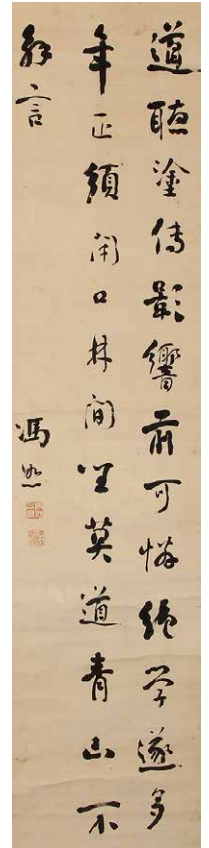 道聽塗傳影響前可憐絕學遂多
年正須閉口林間坐莫道青山不
解言
馮煦